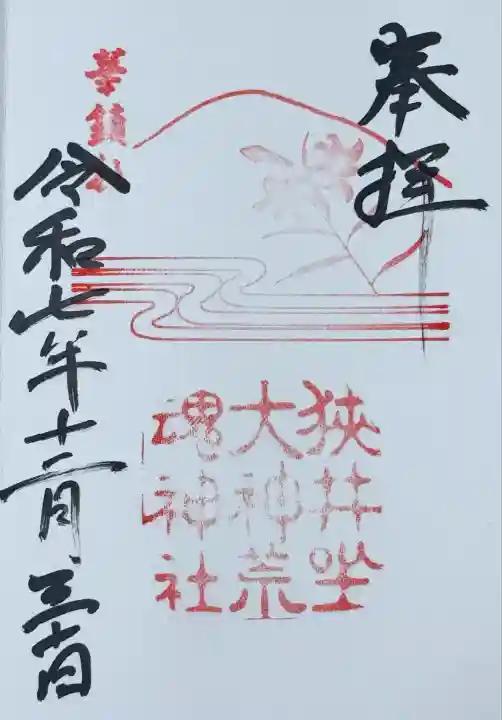 奉拝
狹井坐
大神荒
魂神社
華鎮社
令和七年十二月三十日